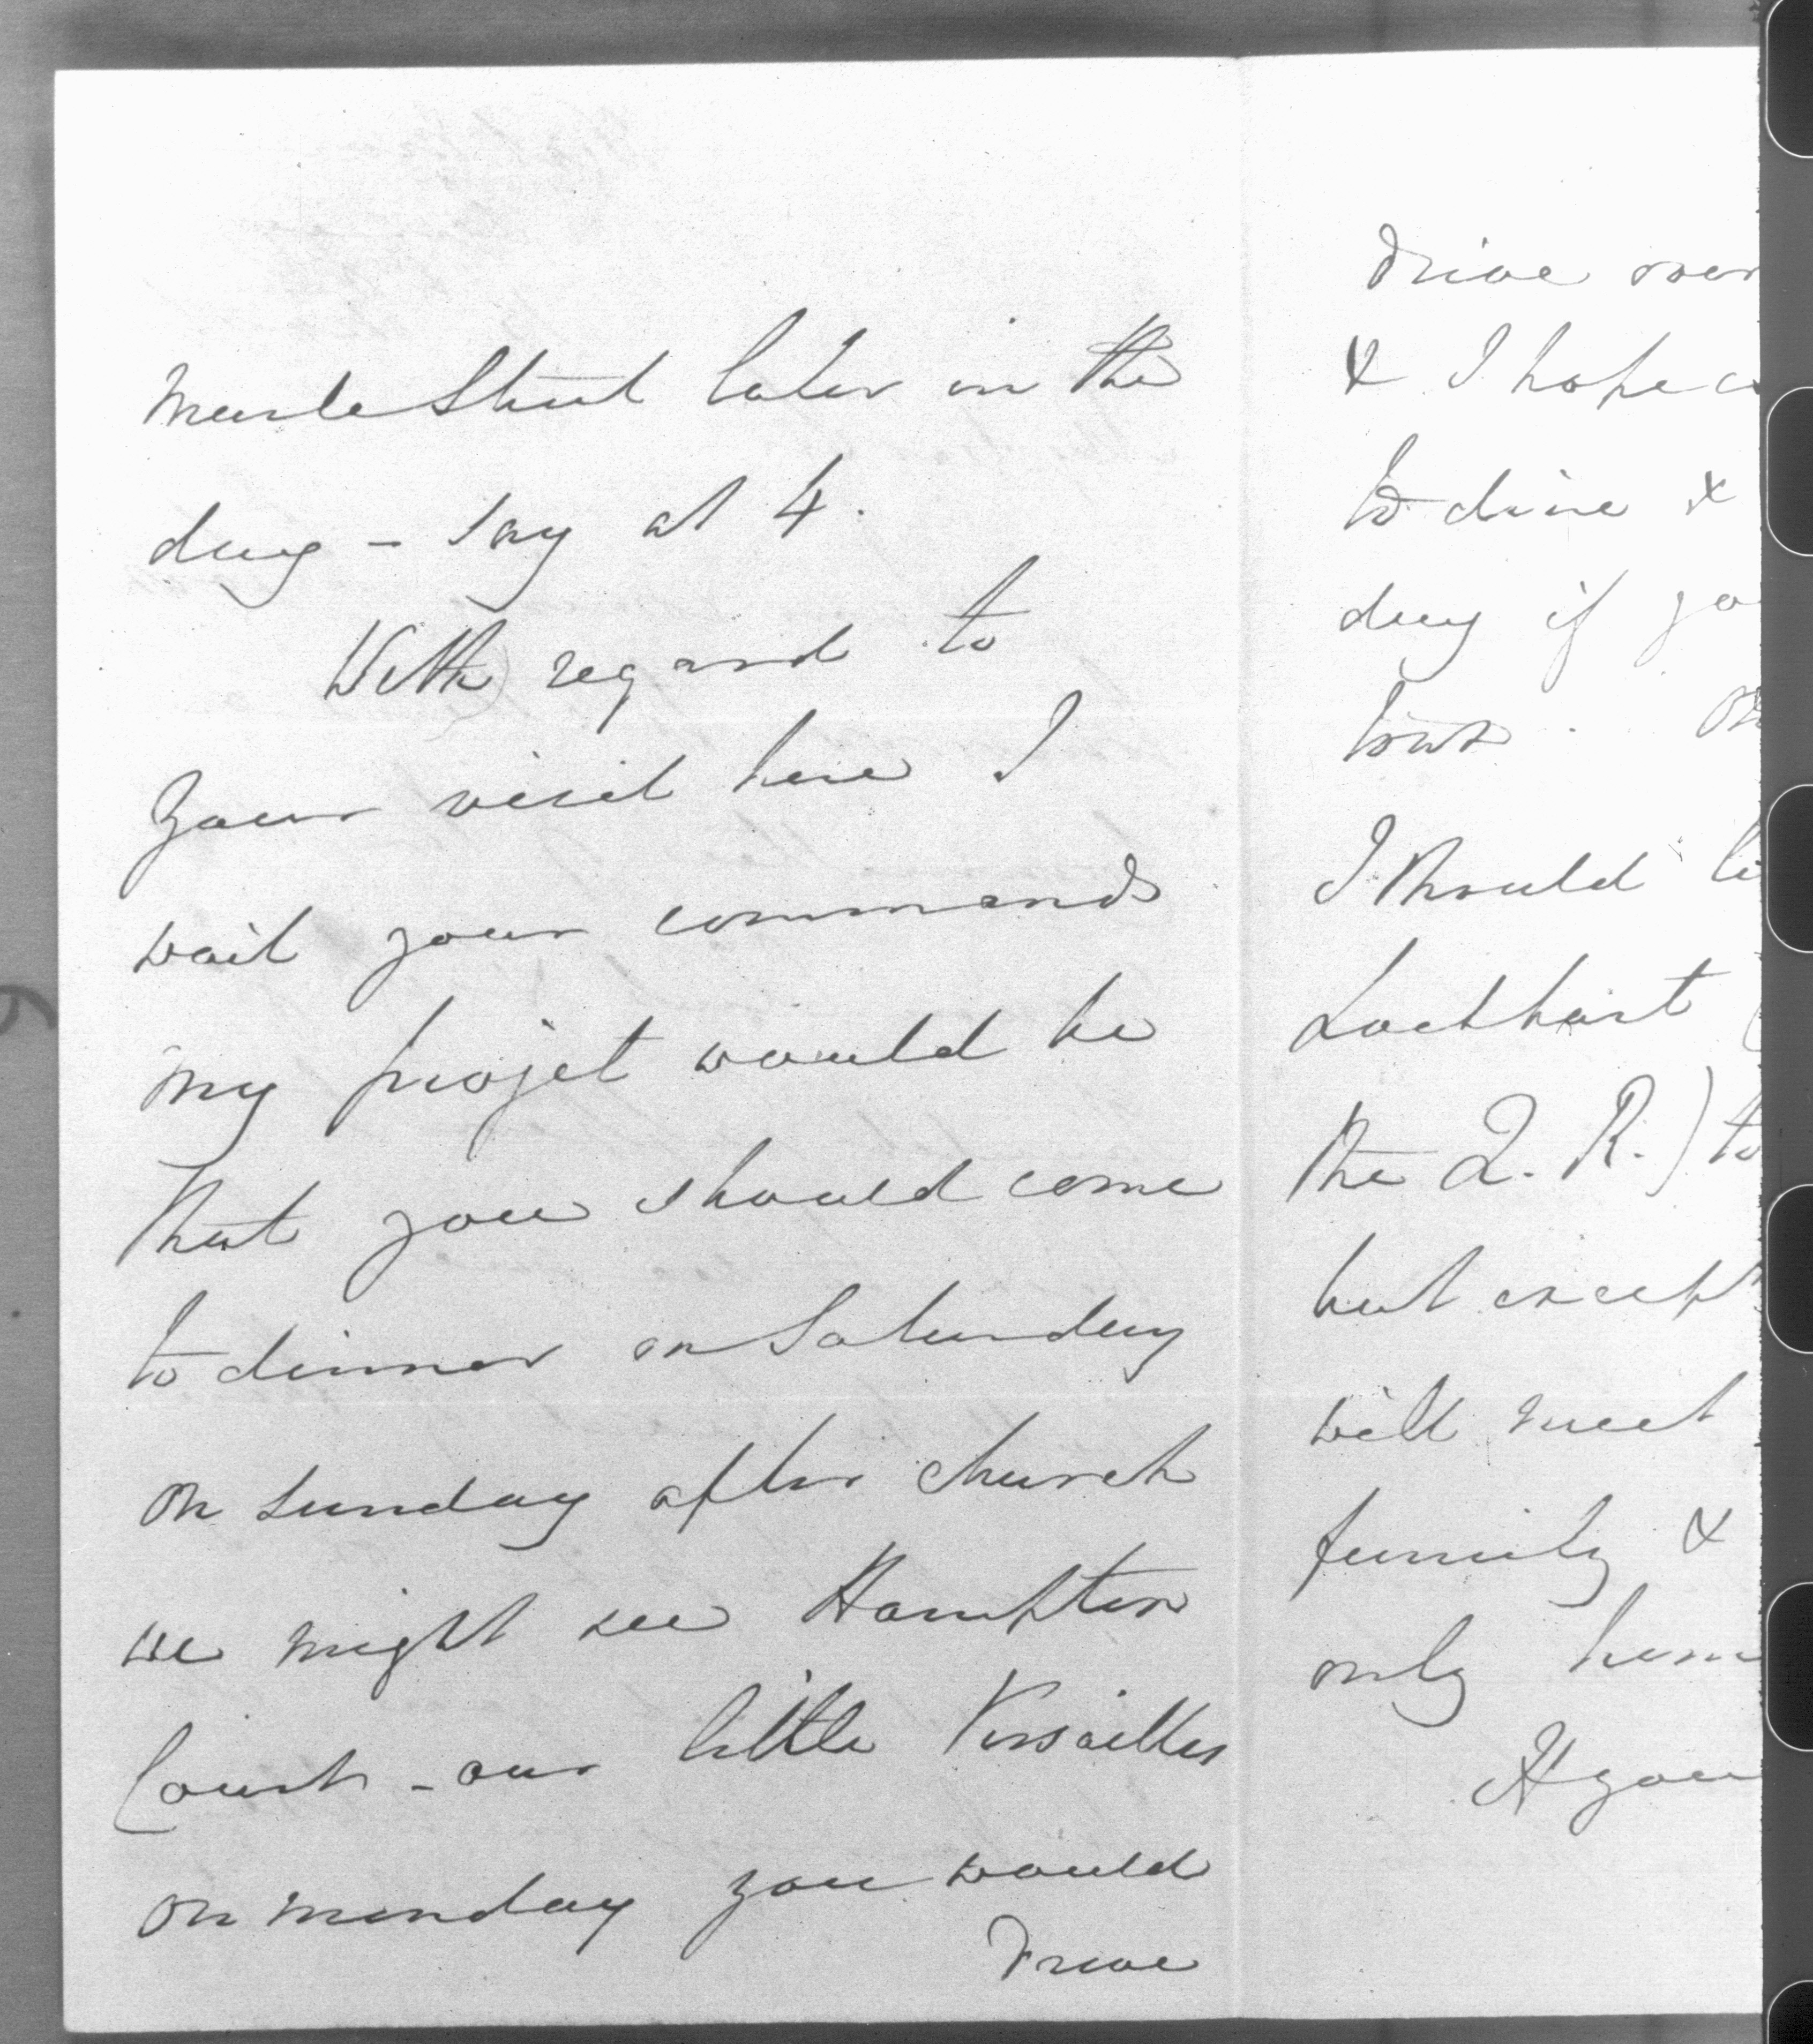 marle Street later in the
day – say at 4.
With regard to
your visit here I
wait your commands
my projet would be
that you should come
to dinner on Saturday
on Sunday after church
we might see Hampton
Court – our little Versailles
on monday you would
drive
drive over
& I hope
to dine &
day if yo
I should li
Lockhart (
the Q. R.) to
but except
will meet
family &
only hum
If you